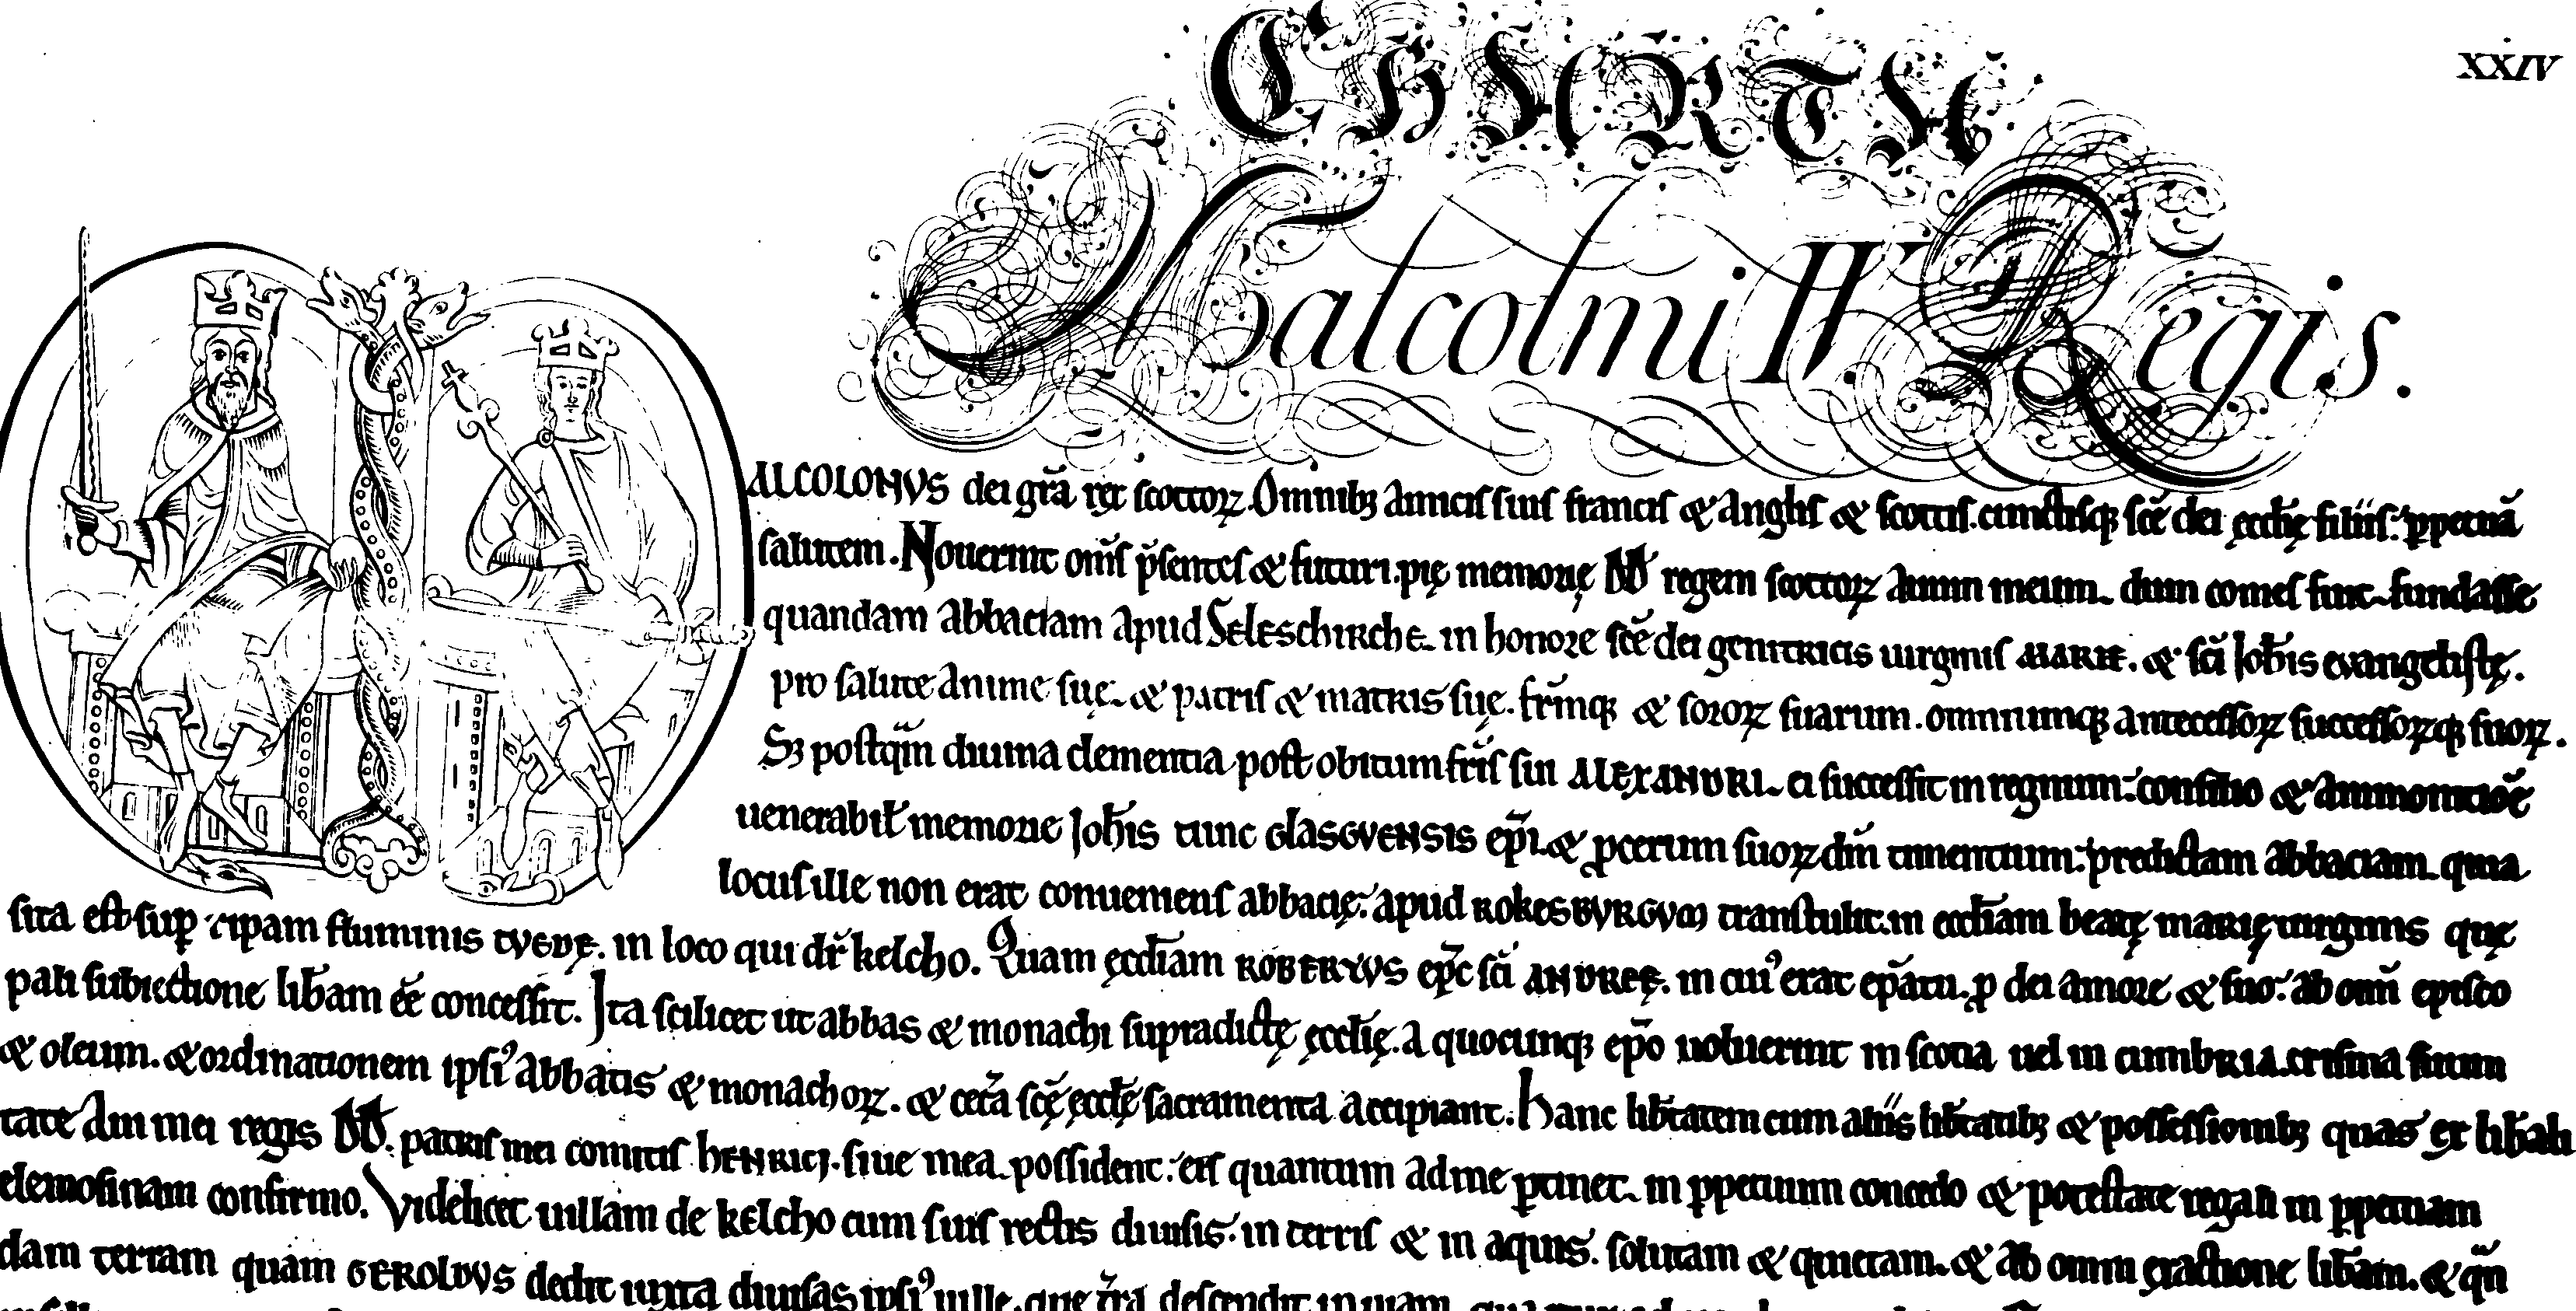 XXIV
CHARTA
Malcolmi IV Regis.
ALCOLONVS dei gr̃a rex scottoꝝ. Omnibꝫ amicis suis francis & anglis & scottis. cunctisqꝫ scẽ dei ęccłię filiis. ꝑpetuã
salutem. Nouerint om̃s p̃sentes & futuri. pię memorię DD regem scottoꝝ auum meum. dum comes fuit. fundasse
quandam abbatiam apud Seleschirche. in honore scẽ dei genitricis uirginis MARIE. & scĩ Joħis evangelistę.
pro salute anime suę. & patris & matris suę. fr̃mqꝫ & sororꝝ suarum. omniumqꝫ antecessorꝝ successorꝝqꝫ suorꝝ.
Sꝫ postqᷓm diuina clementia post obitum fr̃is sui ALEXANDRI. ei successit in regnum: consilio & ammonitiõe
uenerabił memorie Joħis tunc GlasGVENSIS ep̃i. & ꝓcerum suorꝝ dm̃ timentium: predictam abbatiam. quia
locus ille non erat conueniens abbatię: apud ROKESBVRGVM transtulit. in eccłiam beatę marię uirginis quę
sita est sup̱ ripam fluminis TVEDE. in loco qui dr̃ kelcho. Quam ęccłiam ROBERTVS ep̃c scĩ ANDREE. in cuiꝰ erat ep̃atu. ꝓ dei amore & suo: ab omĩ episco
pali subiectione libam eẽ concessit. Ita scilicet ut abbas & monachi supradictę ęccłię. a quocunqꝫ ep̃o uoluerint in scotia uel in cumbRIA. crisma suum
& oleum. & ordinationem ipsiꝰ abbatis & monachorꝝ. & cetã scę̃ ęccłę sacramenta accipiant. Hanc lib̃tatem cum aliis lib̃tatibꝫ & possessionibꝫ quas ex lib̃ali
tate aui mei regis DD. patris mei comitis hENRICI. siue mea. possident: eis quantum ad me ꝑtinet. in ꝑpetuum concedo & potestate regali in ꝑpetuam
elemosinam confirmo. Videlicet uillam de kelcho cum suis rectis diuisis. in terris & in aquis. solutam & quietam. & ab omni exactione lib̃am. & qᷓn
dam terram quam GEROLDVS dedit iuxta diuisas ipsiꝰ uille. que t̃ra descendit in uiam